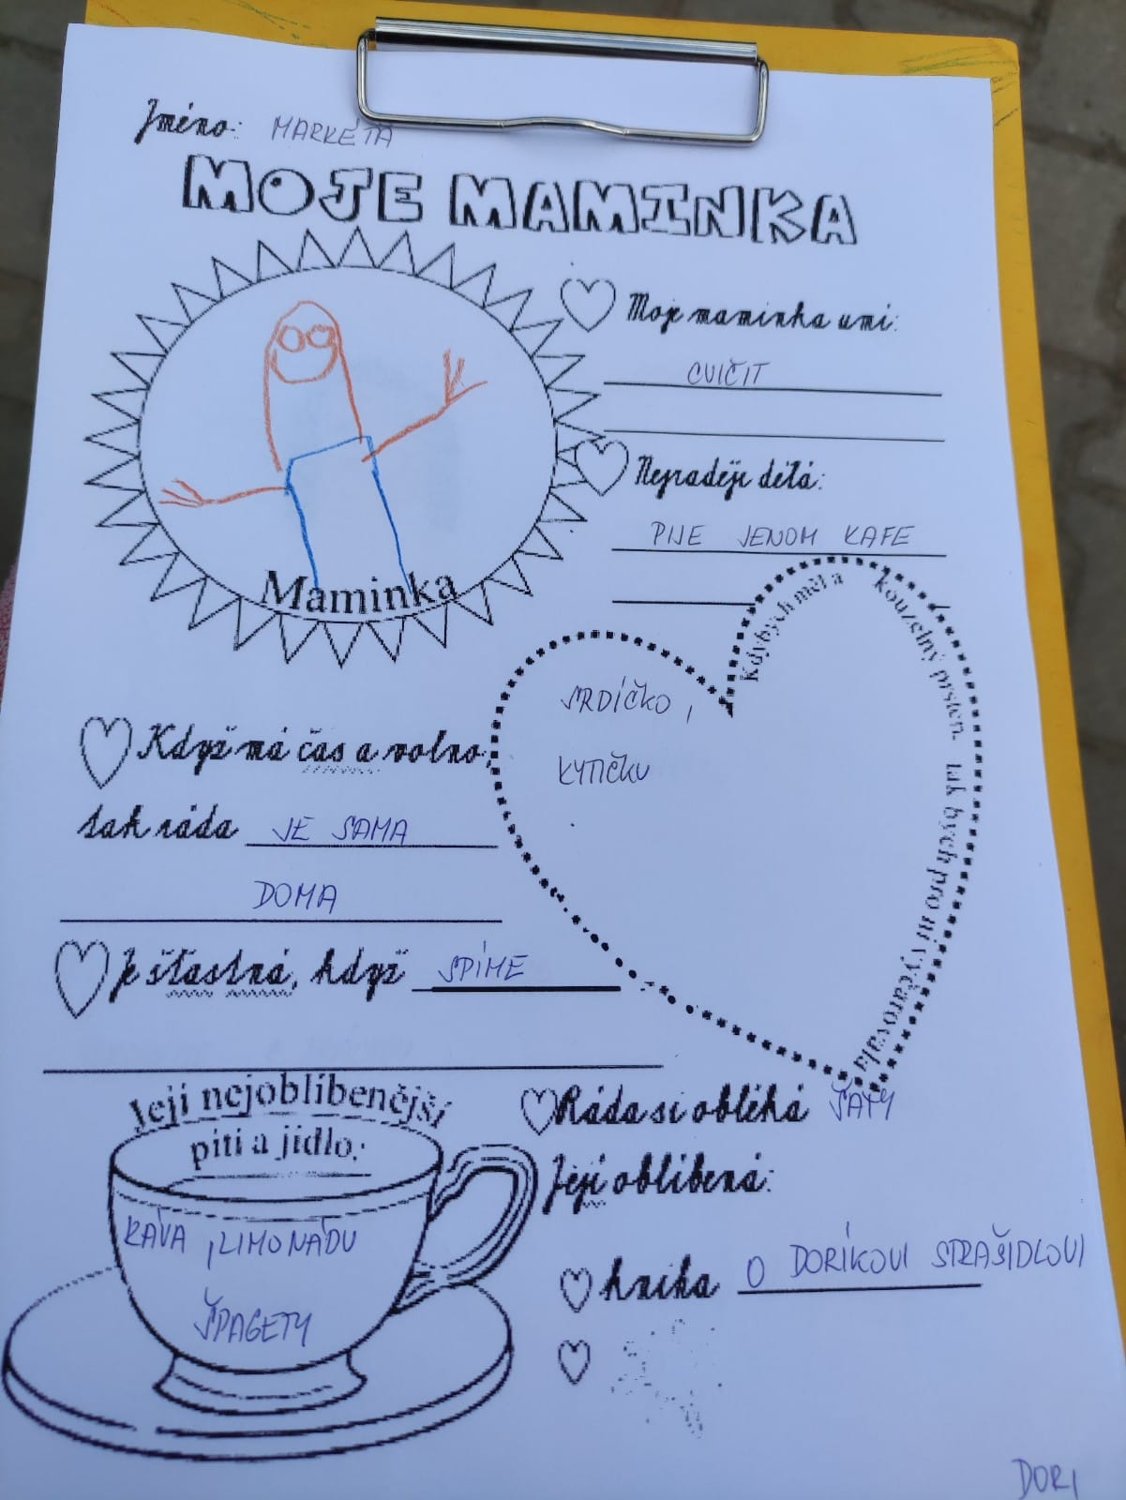 Jméno: MARKÉTA
MOJE MAMINKA
Moje maminka umí:
CVIČIT
Nejraději dělá:
PIJE JENOM KAFE
Maminka
Kdybych měl a kouzelný prsten, tak bych pro ni vyčarovala
SRDÍČKO,
KYTIČKU
Když má čas a volno,
tak ráda JE SAMA
DOMA
Je šťastná, když SPÍME
Její nejoblíbenější
pití a jídlo:
KÁVA, LIMONÁDU
ŠPAGETY
Ráda si obléká ŠATY
Její oblíbená:
kniha O DORÍKOVI STRAŠIDLOVI
DORI